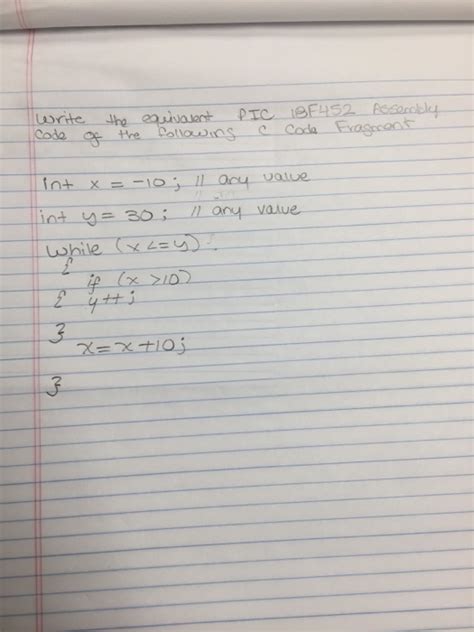 Write the equivalent PIC 18F452 Assembly
Code of the following C Code Fragment
int x = -10; // any value
int y = 30; // any value
while (x <= y)
{
if (x >10)
{ y++;
}
x = x+10;
}